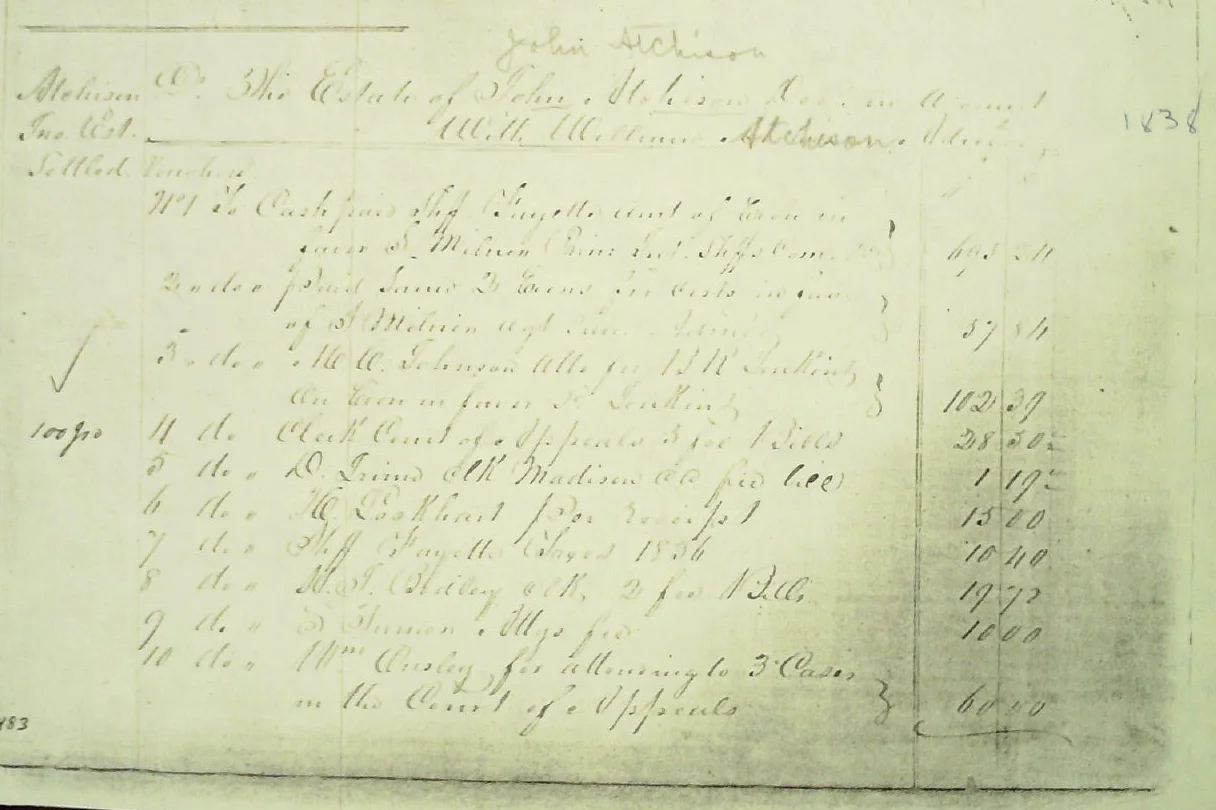 John Atchison
Atchison Dr. The Estate of John Atchison Dec. in account
Jno. Est. With William Atchison Admr
1838
Settled. Vouchers
No 1 To Cash paid Shff Fayette amt of Exon in
favor J. Milner Prin: Int. Shffs Com. 695 24
2 " do " Paid James for costs in fav
of J Milner agt 37 84
3 " do " M. C. Johnson Atto for B R Jenkins
On Exon in favor Jenkins 102 39
100 pd 4 do Clerk Court of Appeals 3 fee Bills 28 50
5 do " D. Irvine clk Madison cc fee bill 1 19
6 do " Lockhart Per receipt 15 00
7 do " Shff Fayette Taxes 1836 10 40
8 do " H. I. Bodley clk, 2 fee Bills 19 72
9 do " Attys fee 10 00
10 do " Wm Ousley for attending to 3 Cases
in the Court of Appeals 60 00
483